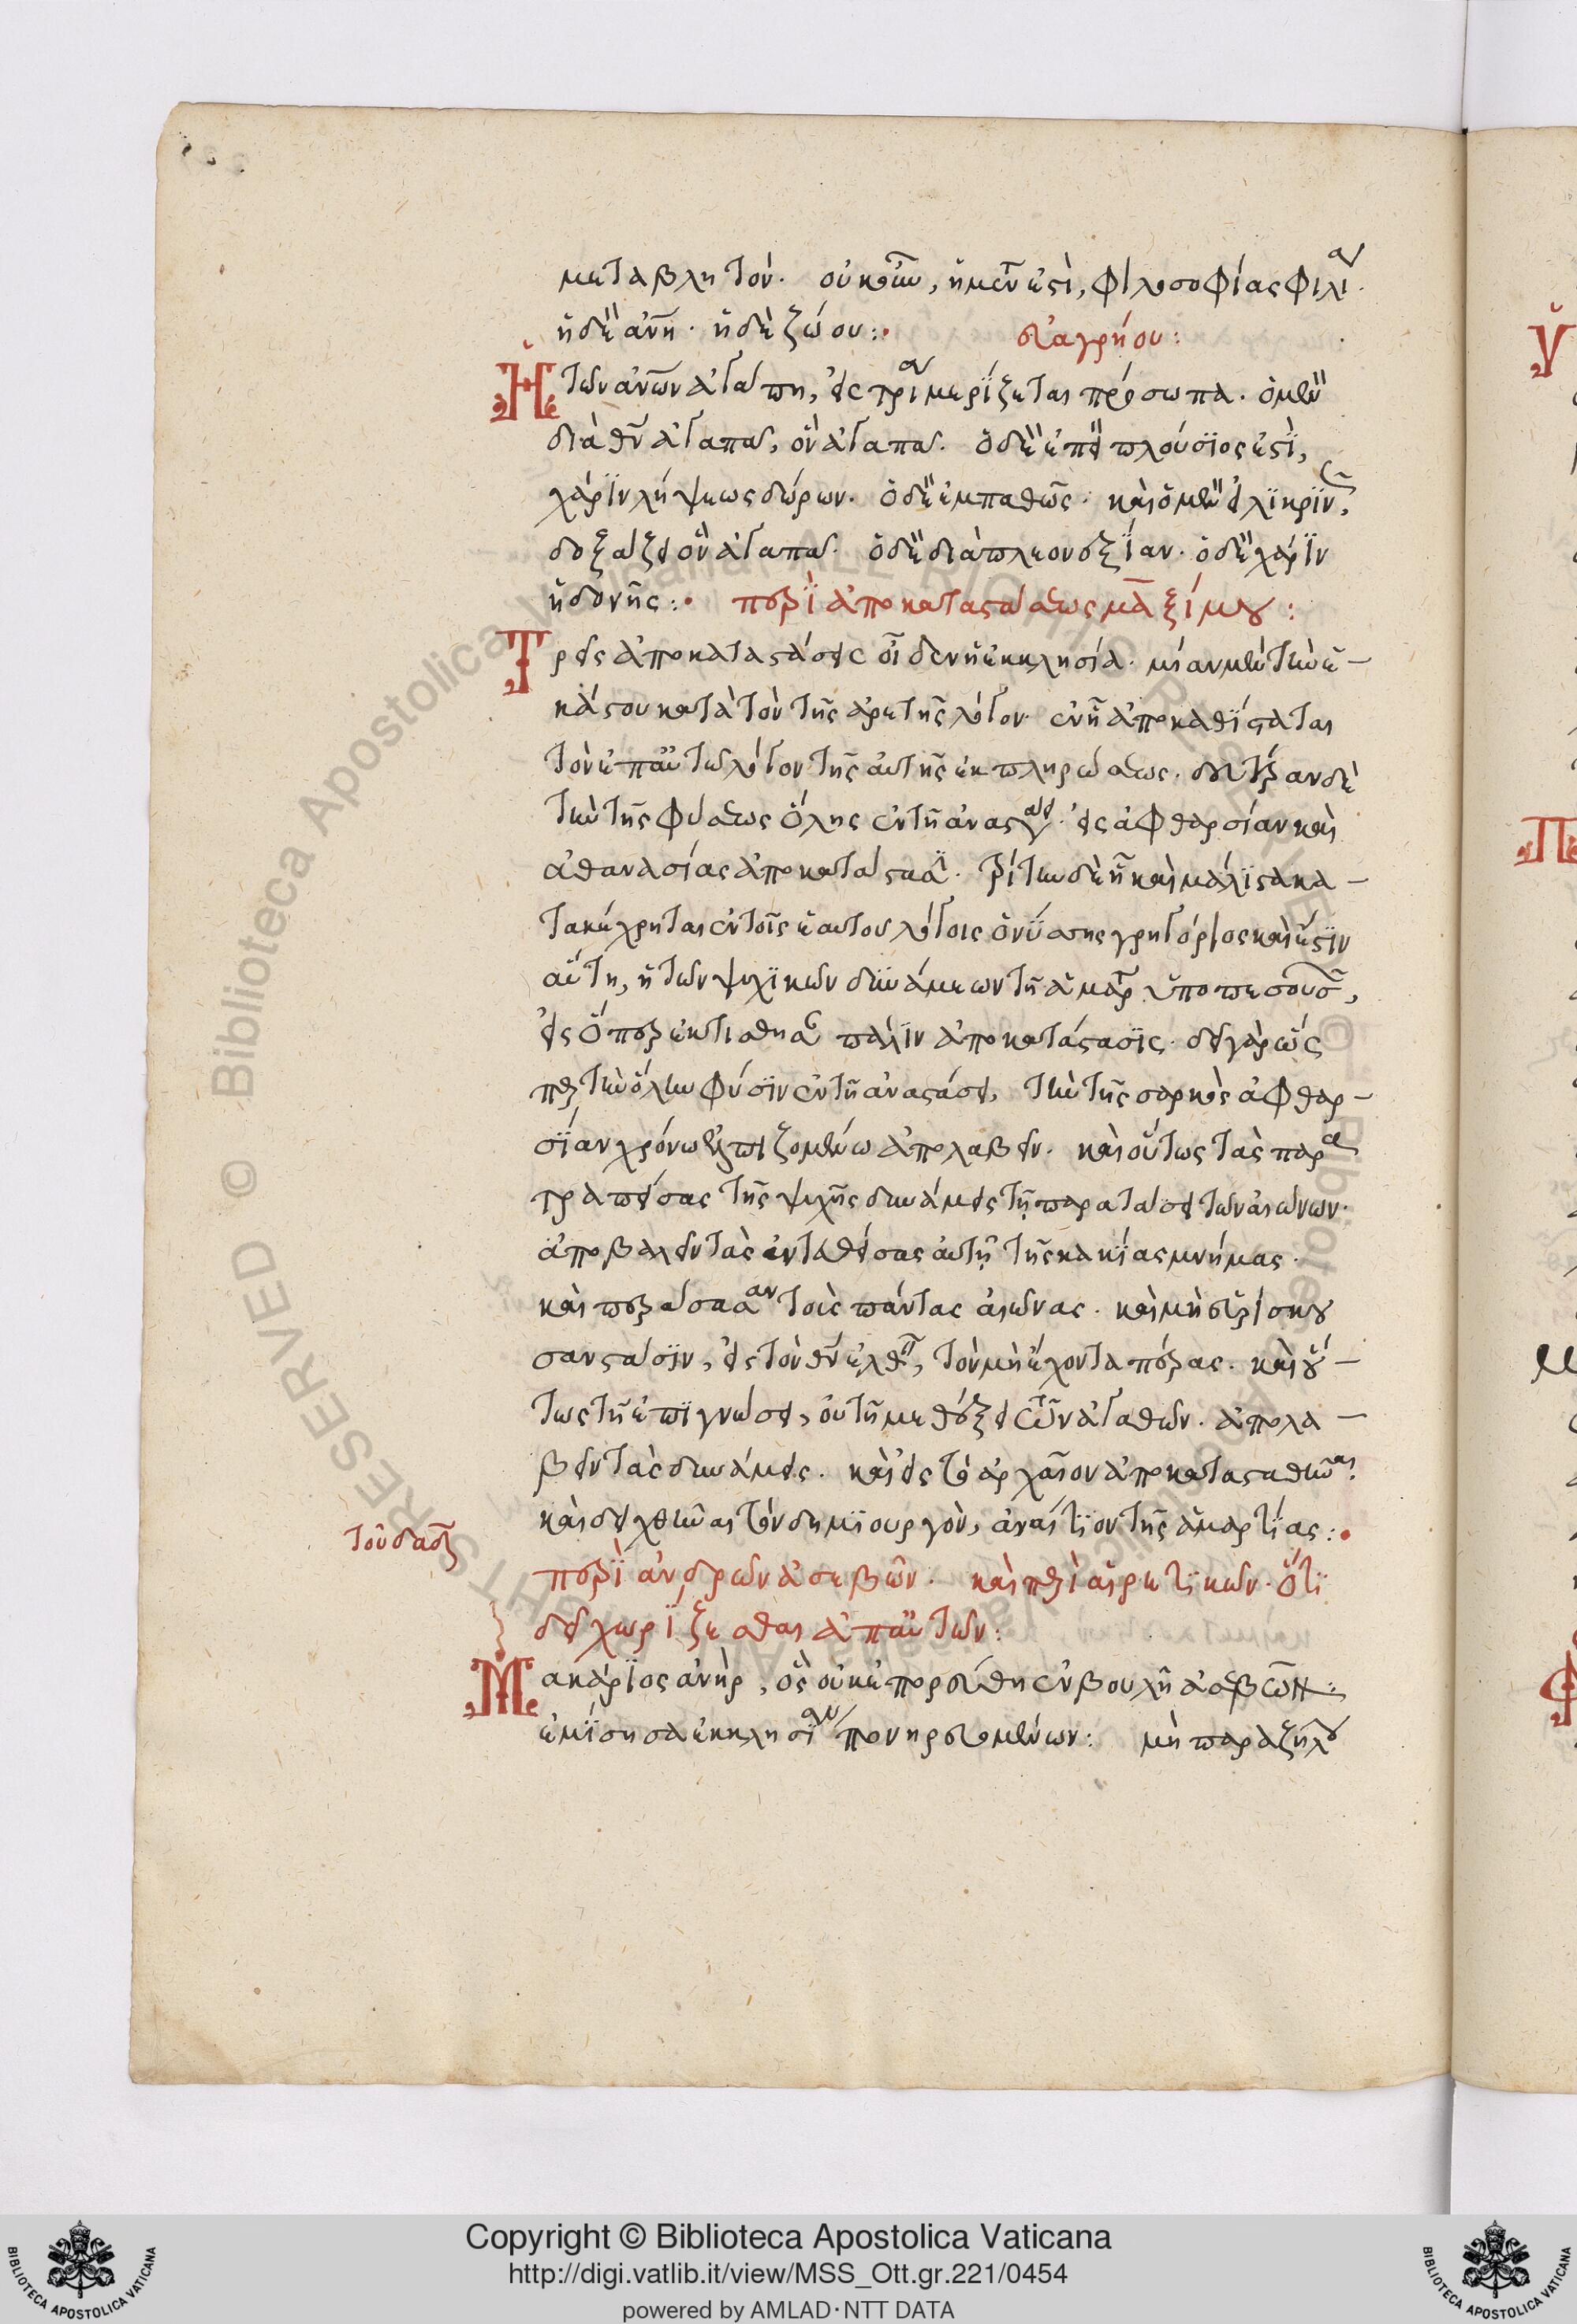 μεταβλητόν. οὐκοῦν, ἡ μέν ἐστι, φιλοσοφίας φιλία.
ἡ δὲ ἀνη. ἡ δὲ ζώου:
εὐαγρίου:
Ἡ τῶν ἀνων ἀγάπη, εἰς τρία μερίζεται πρόσωπα. ὁ μὲν
διὰ θν ἀγαπᾶ, ὃν ἀγαπᾶ. ὁ δὲ ἐπεὶ πλούσϊος ἐστϊ,
χάρϊν λήψεως δώρων. ὁ δὲ ἐμπαθῶς. καὶ ὁ μὲν εἰλϊκρϊνῶς,
δοξάζει ὃν ἀγαπᾶ. ὁ δὲ διὰ πλεονεξΐαν. ὁ δὲ χάρϊν
ἡδονῆς:
περὶ ἀποκαταστάσεως μαξίμου:
Τρεῖς ἀποκαταστάσεις οἶδεν ἡ ἐκκλησία. μίαν μὲν τὴν ἑ-
κάστου κατὰ τὸν τῆς ἀρετῆς λόγον. ἐν ἧ ἀποκαθίσταται
τὸν ἐπ' αὐτῶ λόγον τῆς αὐτῆς ἐκπληρώσεως. δευτέραν δὲ
τὴν τῆς φύσεως ὅλης ἐν τῆ ἀναστάσει. εἰς ἀφθαρσίαν καὶ
ἀθανασίας ἀποκατάστασιν. τρίτην δὲ ἧ καὶ μάλϊστα κα-
τακέχρηται ἐν τοῖς ἑαυτοῦ λόγοις ὁ νύσης γρηγόριος καὶ ἔστϊν
αὕτη, ἡ τῶν ψυχϊκῶν δυνάμεων τῆ ἁμαρτία ὑποπεσουσῶν,
εἰς ὅπερ ἐκτίσθησαν πάλϊν ἀποκατάστασϊς. δεῖ γὰρ ὥς
περ τὴν ὅλην φύσϊν ἐν τῆ ἀναστάσει, τὴν τῆς σαρκὸς ἀφθαρ-
σΐαν χρόνω ἐλπιζομένω ἀπολαβεῖν. καὶ οὕτως τὰς παρα
τραπείσας τῆς ψυχῆς δυνάμεις τῆ παρατάσει τῶν αἰώνων.
ἀποβαλεῖν τὰς ἐνταθείσας αὐτῆ τῆς κακΐας μνήμας.
καὶ περάσασαν τοὺς πάντας αἰῶνας. καὶ μὴ εὑρίσκου
σαν στάσϊν, εἰς τὸν θν ἐλθεῖν, τὸν μὴ ἔχοντα πέρας. καὶ οὕ-
τως τῆ ἐπϊγνώσει, οὐ τῆ μεθέξει τῶν ἀγαθῶν. ἀπολα-
βεῖν τὰς δυνάμεις. καὶ εἰς τὸ ἀρχαῖον ἀποκατασταθῆναι.
καὶ δειχθῆναι τὸν δημϊουργὸν, ἀναίτϊον τῆς ἁμαρτΐας:
τοῦ δαδ
περὶ ἀνδρῶν ἀσεβῶν. καὶ περὶ αἱρετϊκῶν. ὅτϊ
δεῖ χωρΐζεσθαι ἀπ' αὐτῶν:
Μακάρϊος ἀνὴρ, ὃς οὐκ ἐπορεύθη ἐν βουλῆ ἀσεβῶν:
ἐμίσησα ἐκκλησΐαν πονηρευομένων: μὴ παραζήλου
Copyright © Biblioteca Apostolica Vaticana
http://digi.vatlib.it/view/MSS_Ott.gr.221/0454
powered by AMLAD·NTT DATA